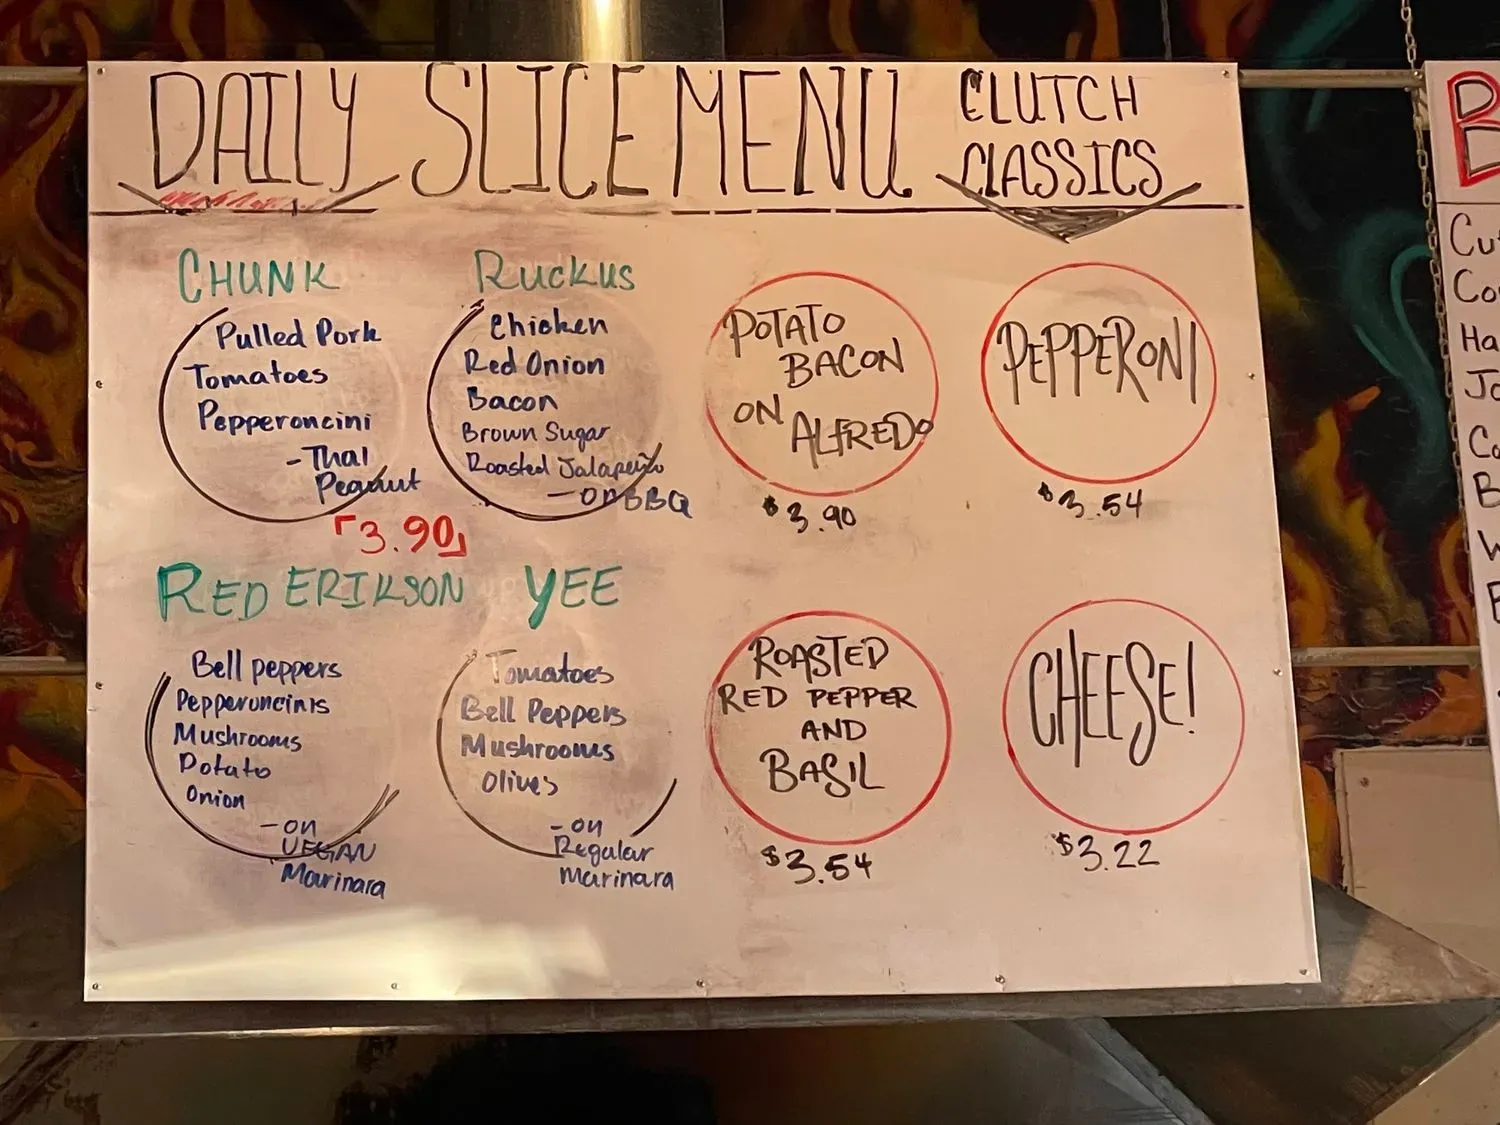 DAILY SLICE MENU
CLUTCH
CLASSICS
CHUNK
Pulled Pork
Tomatoes
Pepperoncini
- Thai
Peanut
Ruckus
Chicken
Red Onion
Bacon
Brown Sugar
Roasted Jalapeño
- on BBQ
「3.90」
RED ERIKSON
Bell peppers
Pepperoncinis
Mushrooms
Potato
Onion
- on
VEGAN
Marinara
YEE
Tomatoes
Bell Peppers
Mushrooms
Olives
- on
Regular
marinara
POTATO
BACON
ON
ALFREDO
$3.90
PEPPERONI
$3.54
ROASTED
RED PEPPER
AND
BASIL
$3.54
CHEESE!
$3.22